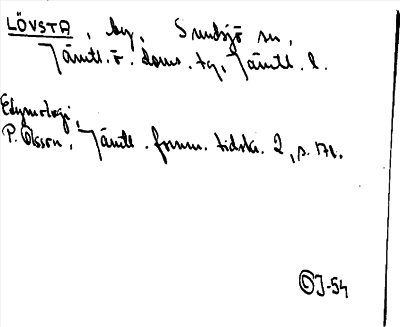 LÖVSTA, by, Sundsjö sn,
Jämtl. ö. doms. tg, Jämtl. l.
Etymologi,
P. Olsson, Jämtl. fornm. tidskr. 2, s. 171.
©J-54